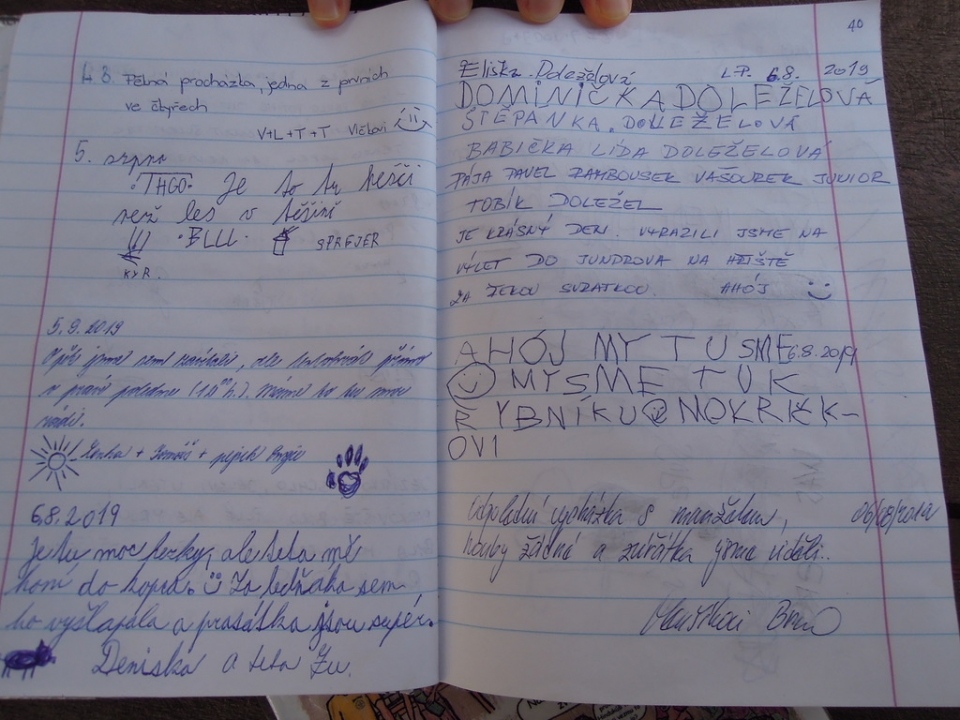 4.8. Pěkná procházka, jedna z prvních
ve čtyřech
V+L+T+T Vlčkovi
5. srpna
THGO Je to tu hezčí
než les v
BLUL SPREJER
KYR.
5.9.2019
jsme sem , ale tentokrát přímo
v pravé poledne (12 h.). Máme to tu moc
rádi.
Lenka + Tomáš + pejsek
6.8.2019
Je tu moc hezky, ale teta mě
honí do kopce. Za sem
to vyšlapala a prasátka jsou supér.
Deniska a teta Zu.
40
Eliška Doležélová L.P. 6.8. 2019
DOMINIČKA DOLEŽELOVÁ
ŠTĚPÁNKA DOLEŽELOVÁ
BABIČKA LÍDA DOLEŽELOVÁ
PÁJA PAVEL RAMBOUSEK VAŠOUREK JUNIOR
TOBÍK DOLEŽEL
JE KRÁSNÝ DEN. VYRAZILI JSME NA
VÝLET DO JUNDROVA NA HŘIŠTĚ
ZA ŘEKOU SVRATKOU. AHÓJ
AHÓJ MY TU SME 6.8.2019
MY SME TU K
RYBNÍKU MOKR
OVI
Odpolední vycházka s manželem, 06/08/2019
houby žádné a zvířátka jsme viděli..
Brno